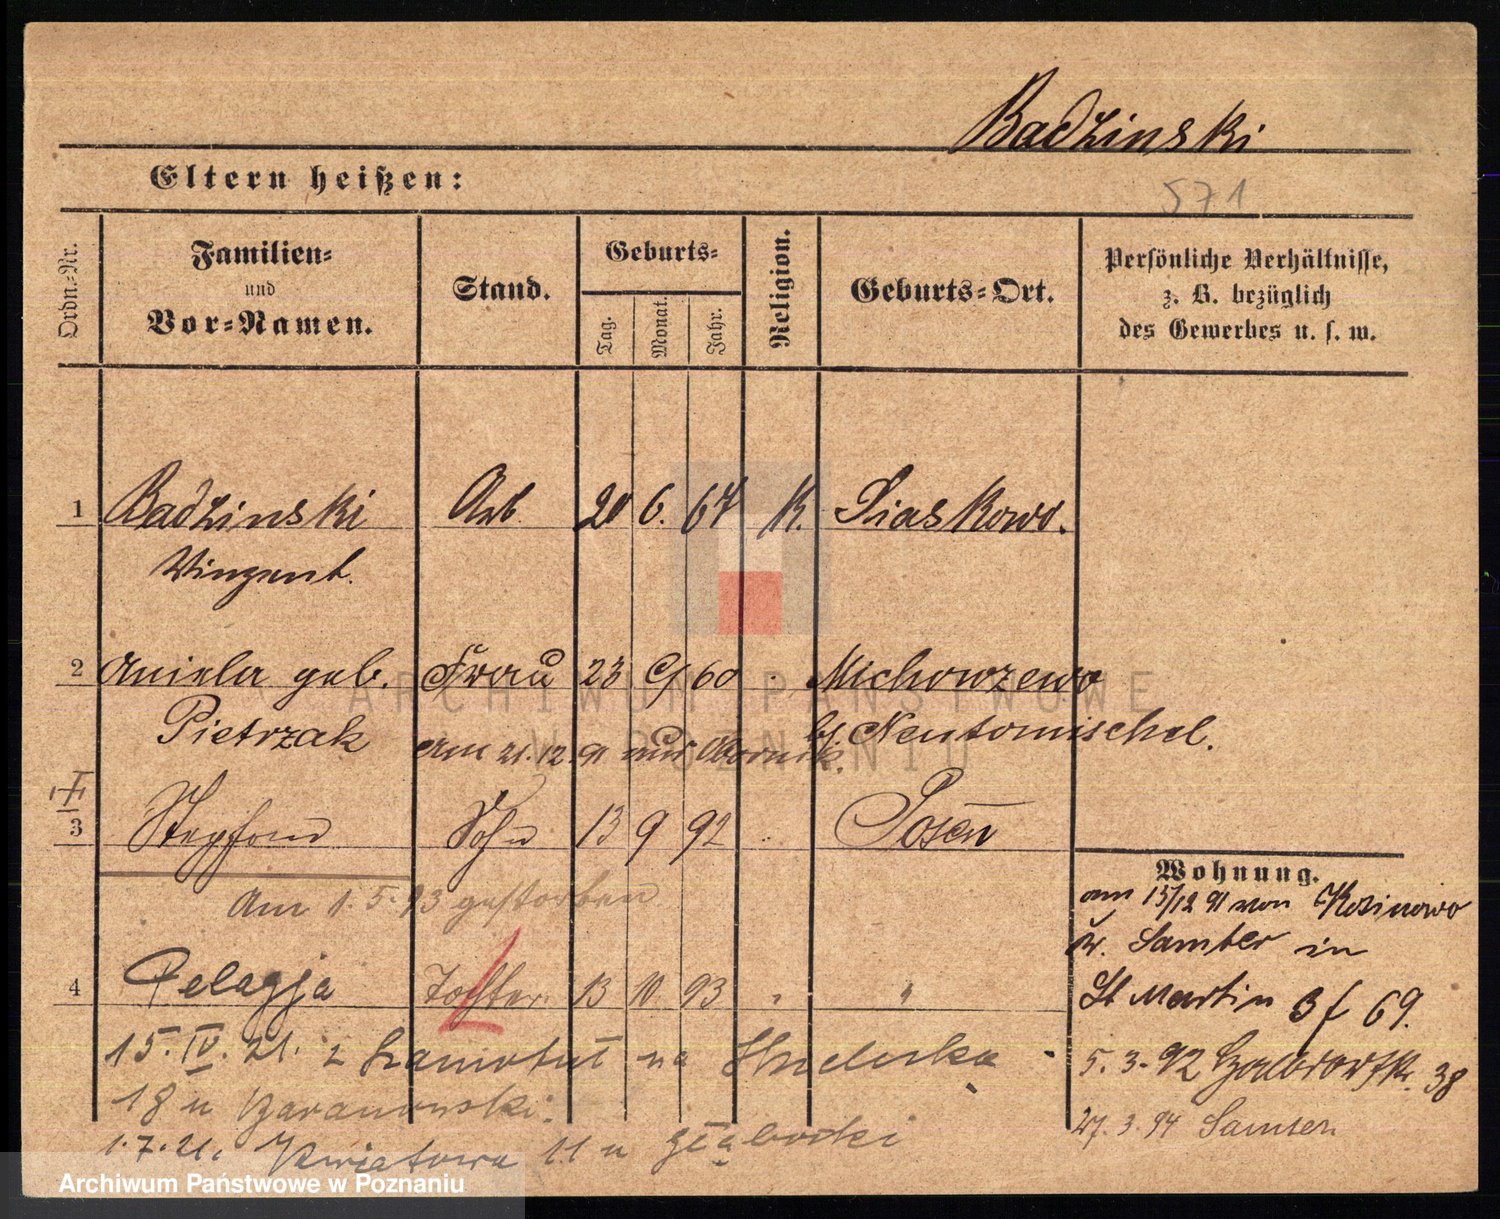 Badzinski
Eltern heißen:
571
Ordn.-Nr.
Familien-
und
Vor-Namen.
Stand.
Geburts-
Tag.
Monat.
Jahr.
Religion.
Geburts-Ort.
Persönliche Verhältnisse,
z. B. bezüglich
des Gewerbes u. s. w.
1 Badzinski Arb. 20 6. 67 K. Piaskowo.
Vinzent.
2 Aniela geb. Frau 23 9 60 Michorzewo
Pietrzak
b/ Neutomischel.
am 21.12.91 aus Obornik.
3 Sohn 13 9 92 Posen
Am 1.5.93 gestorben
4 Pelagja Tochter. 13 10 93 "
15.IV.21. z Szamotuł na
18 u Baranowski.
1.7.21. Kwiatowa 11 u Głębocki
Wohnung.
am 15/12 91 von
Kr. Samter in
St Martin 69.
5.3.92 38
27.3.94 Samter
ARCHIWUM PAŃSTWOWE
W POZNANIU
Archiwum Państwowe w Poznaniu